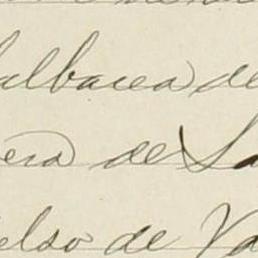 albacea de
era de Sa
elso de Va